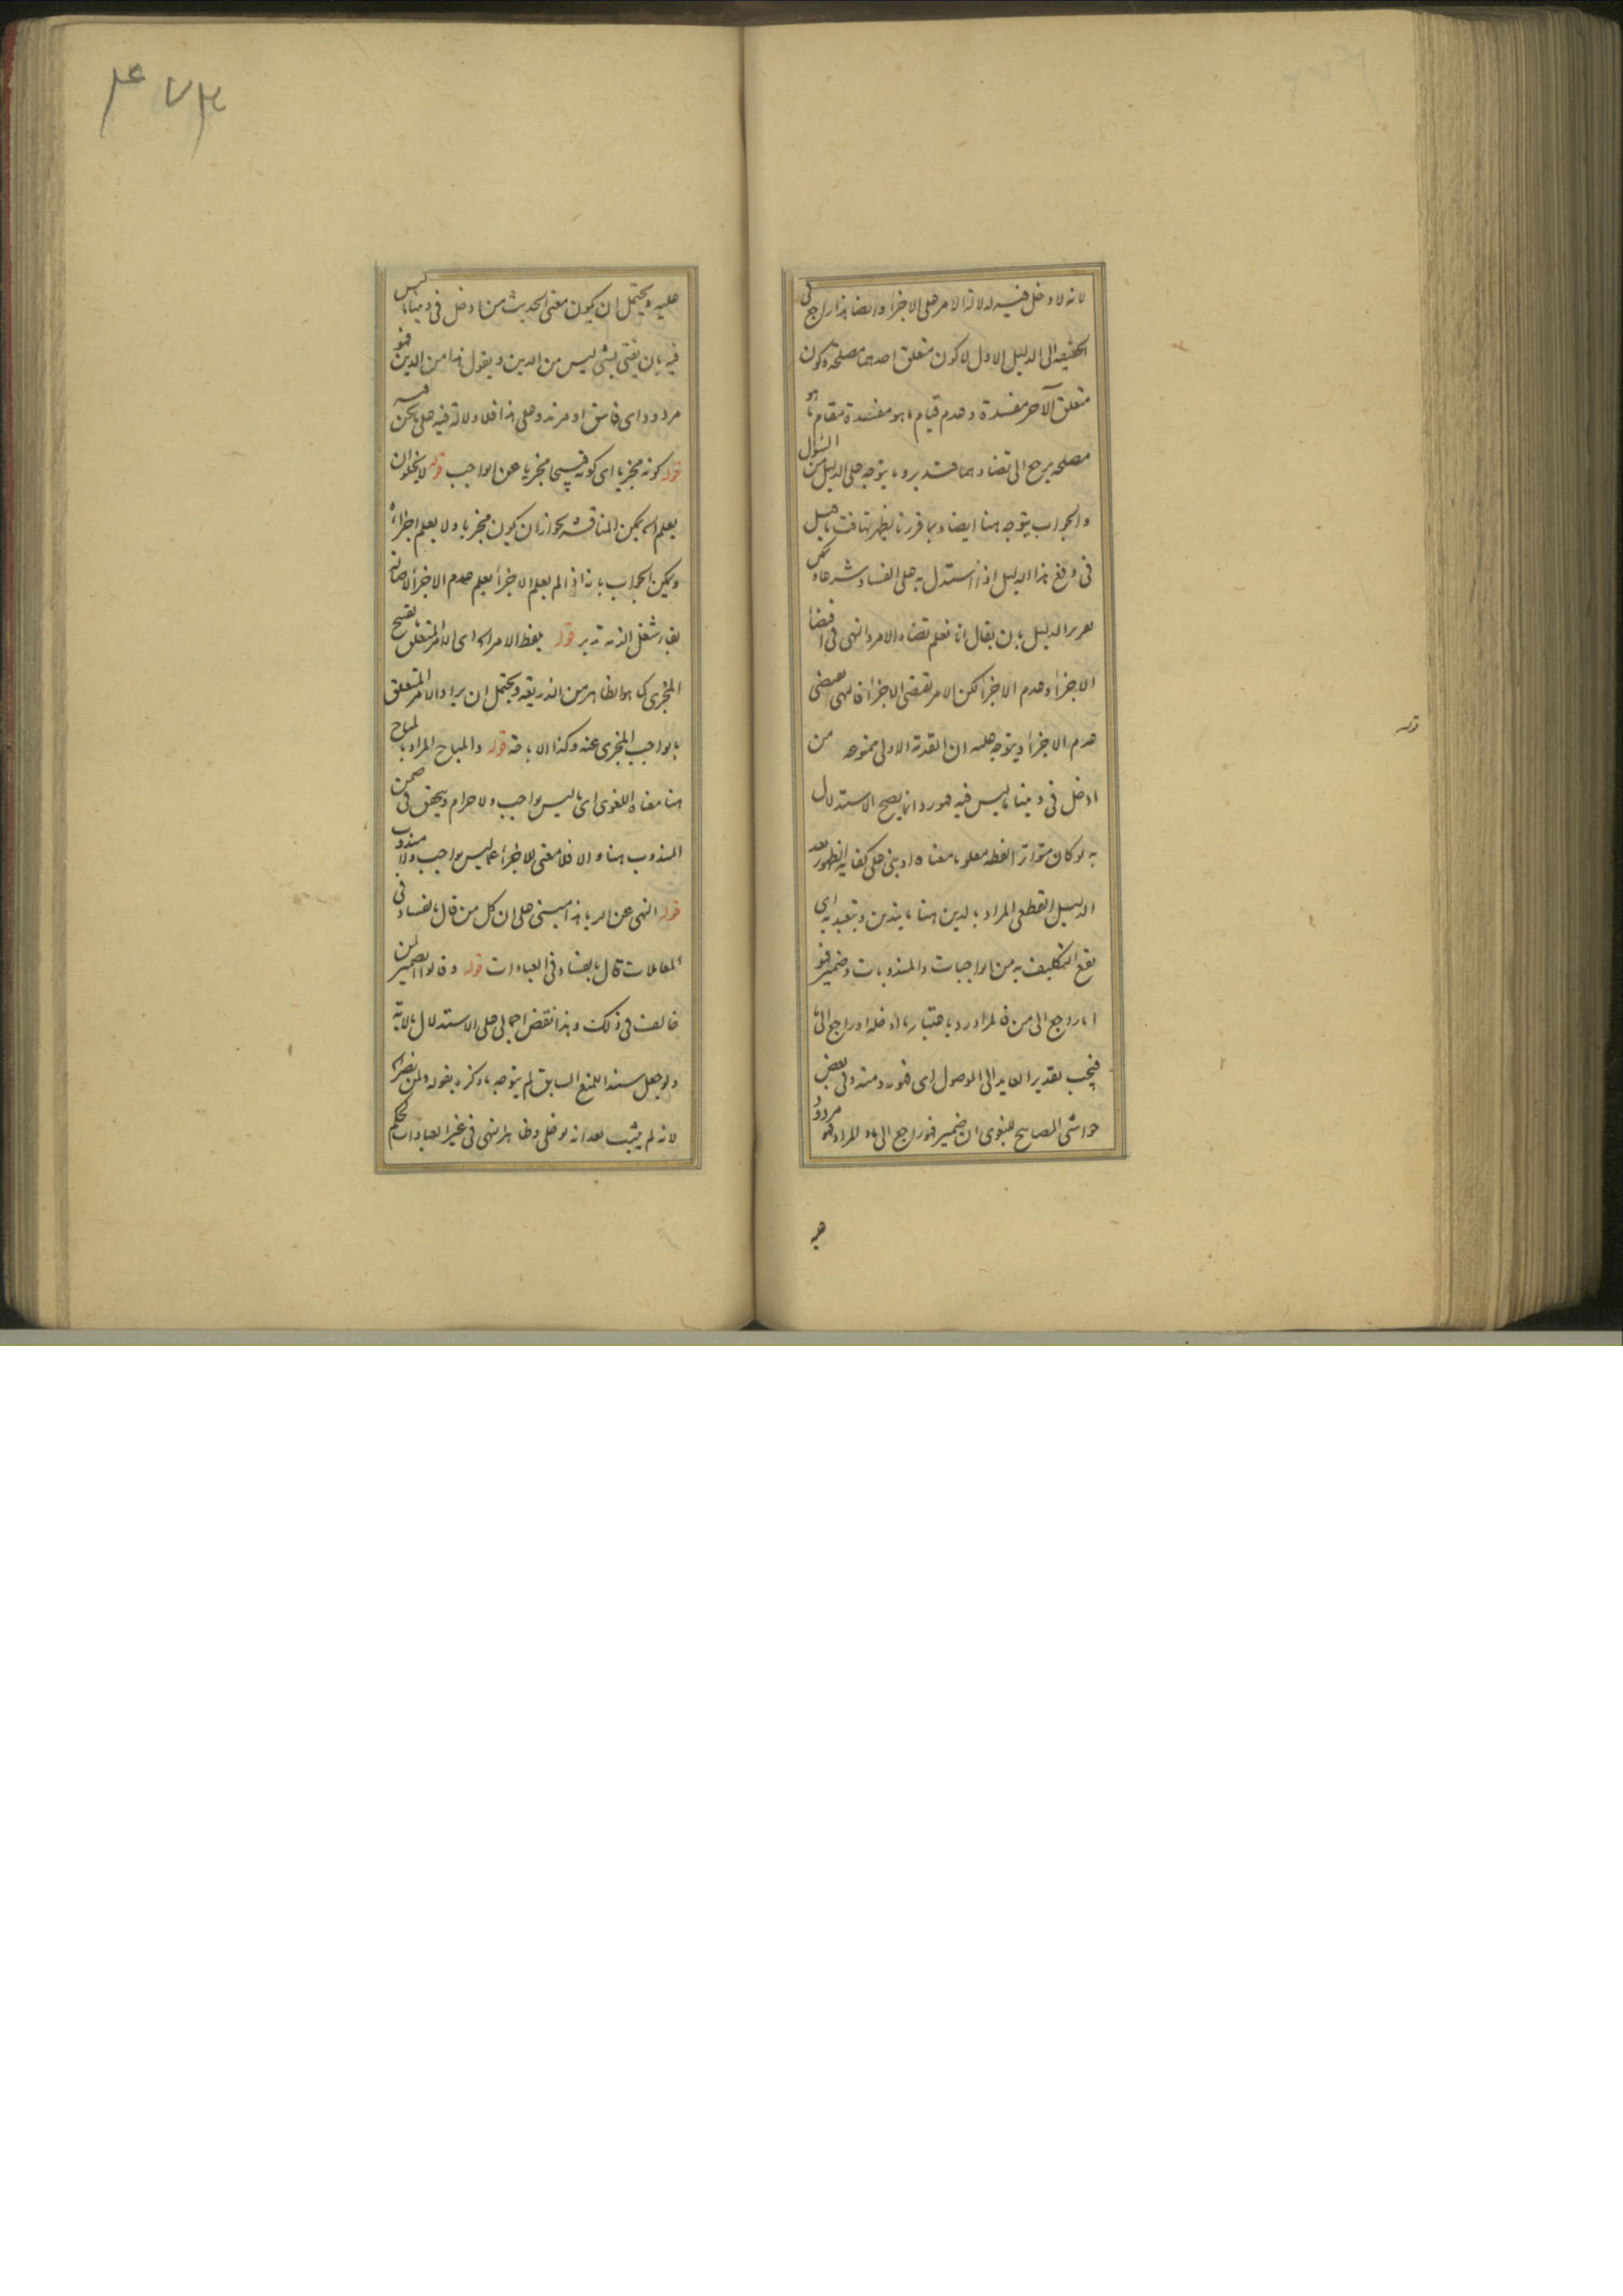 لانه لا دخل فيه لدلالة الامر على الاجزاء وايضا هذا راجع في
الحقيقة الى الدليل الاول لا كون متعلق احدهما مصلحة وكون
متعلق الآخر مفسدة وعدم قيام ما هو مفسدة مقام ما هو
مصلحه يرجع الى تضادهما فتدبر وما يتوجه على الدليل من السؤال
والجواب يتوجه هنا ايضا وبما قررنا يظهر تهافت ما قيل
في دفع هذا الدليل اذا استدل به على الفساد شرعا
الدليل بان يقال انا نعلم تضاد الامر والنهى فى اقتضا
الاجزاء وعدم الاجزاء لكن الامر يقتضى الاجزاء فالنهى يقتضى
عدم الاجزاء ويتوجه عليه ان المقدمة الاولى ممنوعه من
ادخل فى ديننا ما ليس فيه فهو رد انما يصح الاستدلال
به لو كان متواتر الفظه معلوما معناه او بنى على كفاية الظهور بعد
الدليل القطعى المراد بالدين هنا ما يتدين ويتعبد به اى
يقع التكليف به من الواجبات والمندوبات وضمير فهو
اما راجع الى من فالمراد رد باعتبار ما ادخله او راجع الى ما
فيجب تقدير العايد الى الموصول اى فهو رد منه وفى بعض
حواشى المصابيح للبغوى ان ضمير فهو راجع الى ما والمراد فهو مردود
عليه
قوله
۴۷۳
عليه ويحتمل ان يكون معنى الحديث من ادخل فى ديننا ما ليس
فيه بان يفتى بشئ ليس من الدين ويقول هذا من الدين فهو
مردود اى فاسق او مرتد وعلى هذا فلا دلالة فيه على ما نحن فيه
قوله كونه مجزيا اى كونه قبيحا مجزيا عن الواجب قوله لا يخلو ان
يعلم اه يمكن المناقشه لجواز ان يكون مجزيا ولا يعلم اجزاءه
ويمكن الجواب بانه اذا لم يعلم الاجزاء يعلم عدم الاجزاء لاصالة
بقاء شغل الذمة تدبر قوله بلفظ الامر اه اى الامر المتعلق بقبيح
المجزى كما هو الظاهر من الذريعة ويحتمل ان يراد الامر المتعلق
بالواجب المجزى عنه وكذا الاباحة قوله والمباح المراد بالمباح
هنا معناه اللغوى اى ما ليس بواجب ولا حرام ويتحقق فى ضمن
المندوب هنا والا فلا معنى للاجزاء عما ليس بواجب ولا مندوب
قوله النهى عن الربا هذا مبنى على ان كل من قال بالفساد فى
المعاملات قال بالفساد فى العبادات قوله وقالوا
خالف فى ذلك وهذا نقض اجمالى على الاستدلال بالاية
ولو جعل سندا للمنع السابق لم يتوجه ما ذكره بقوله ولمن نصر اه
لانه لم يثبت بعد انه لو خلى وظاهر النهى فى غير العبادات لحكم